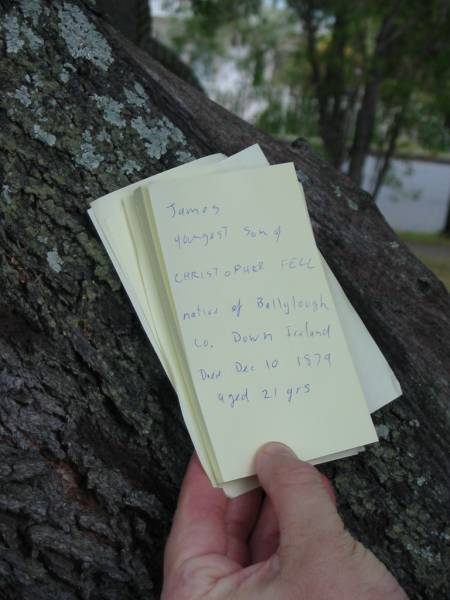 James
youngest son of
CHRISTOPHER FELL
native of Ballylough
Co. Down Ireland
Died Dec 10 1879
aged 21 yrs